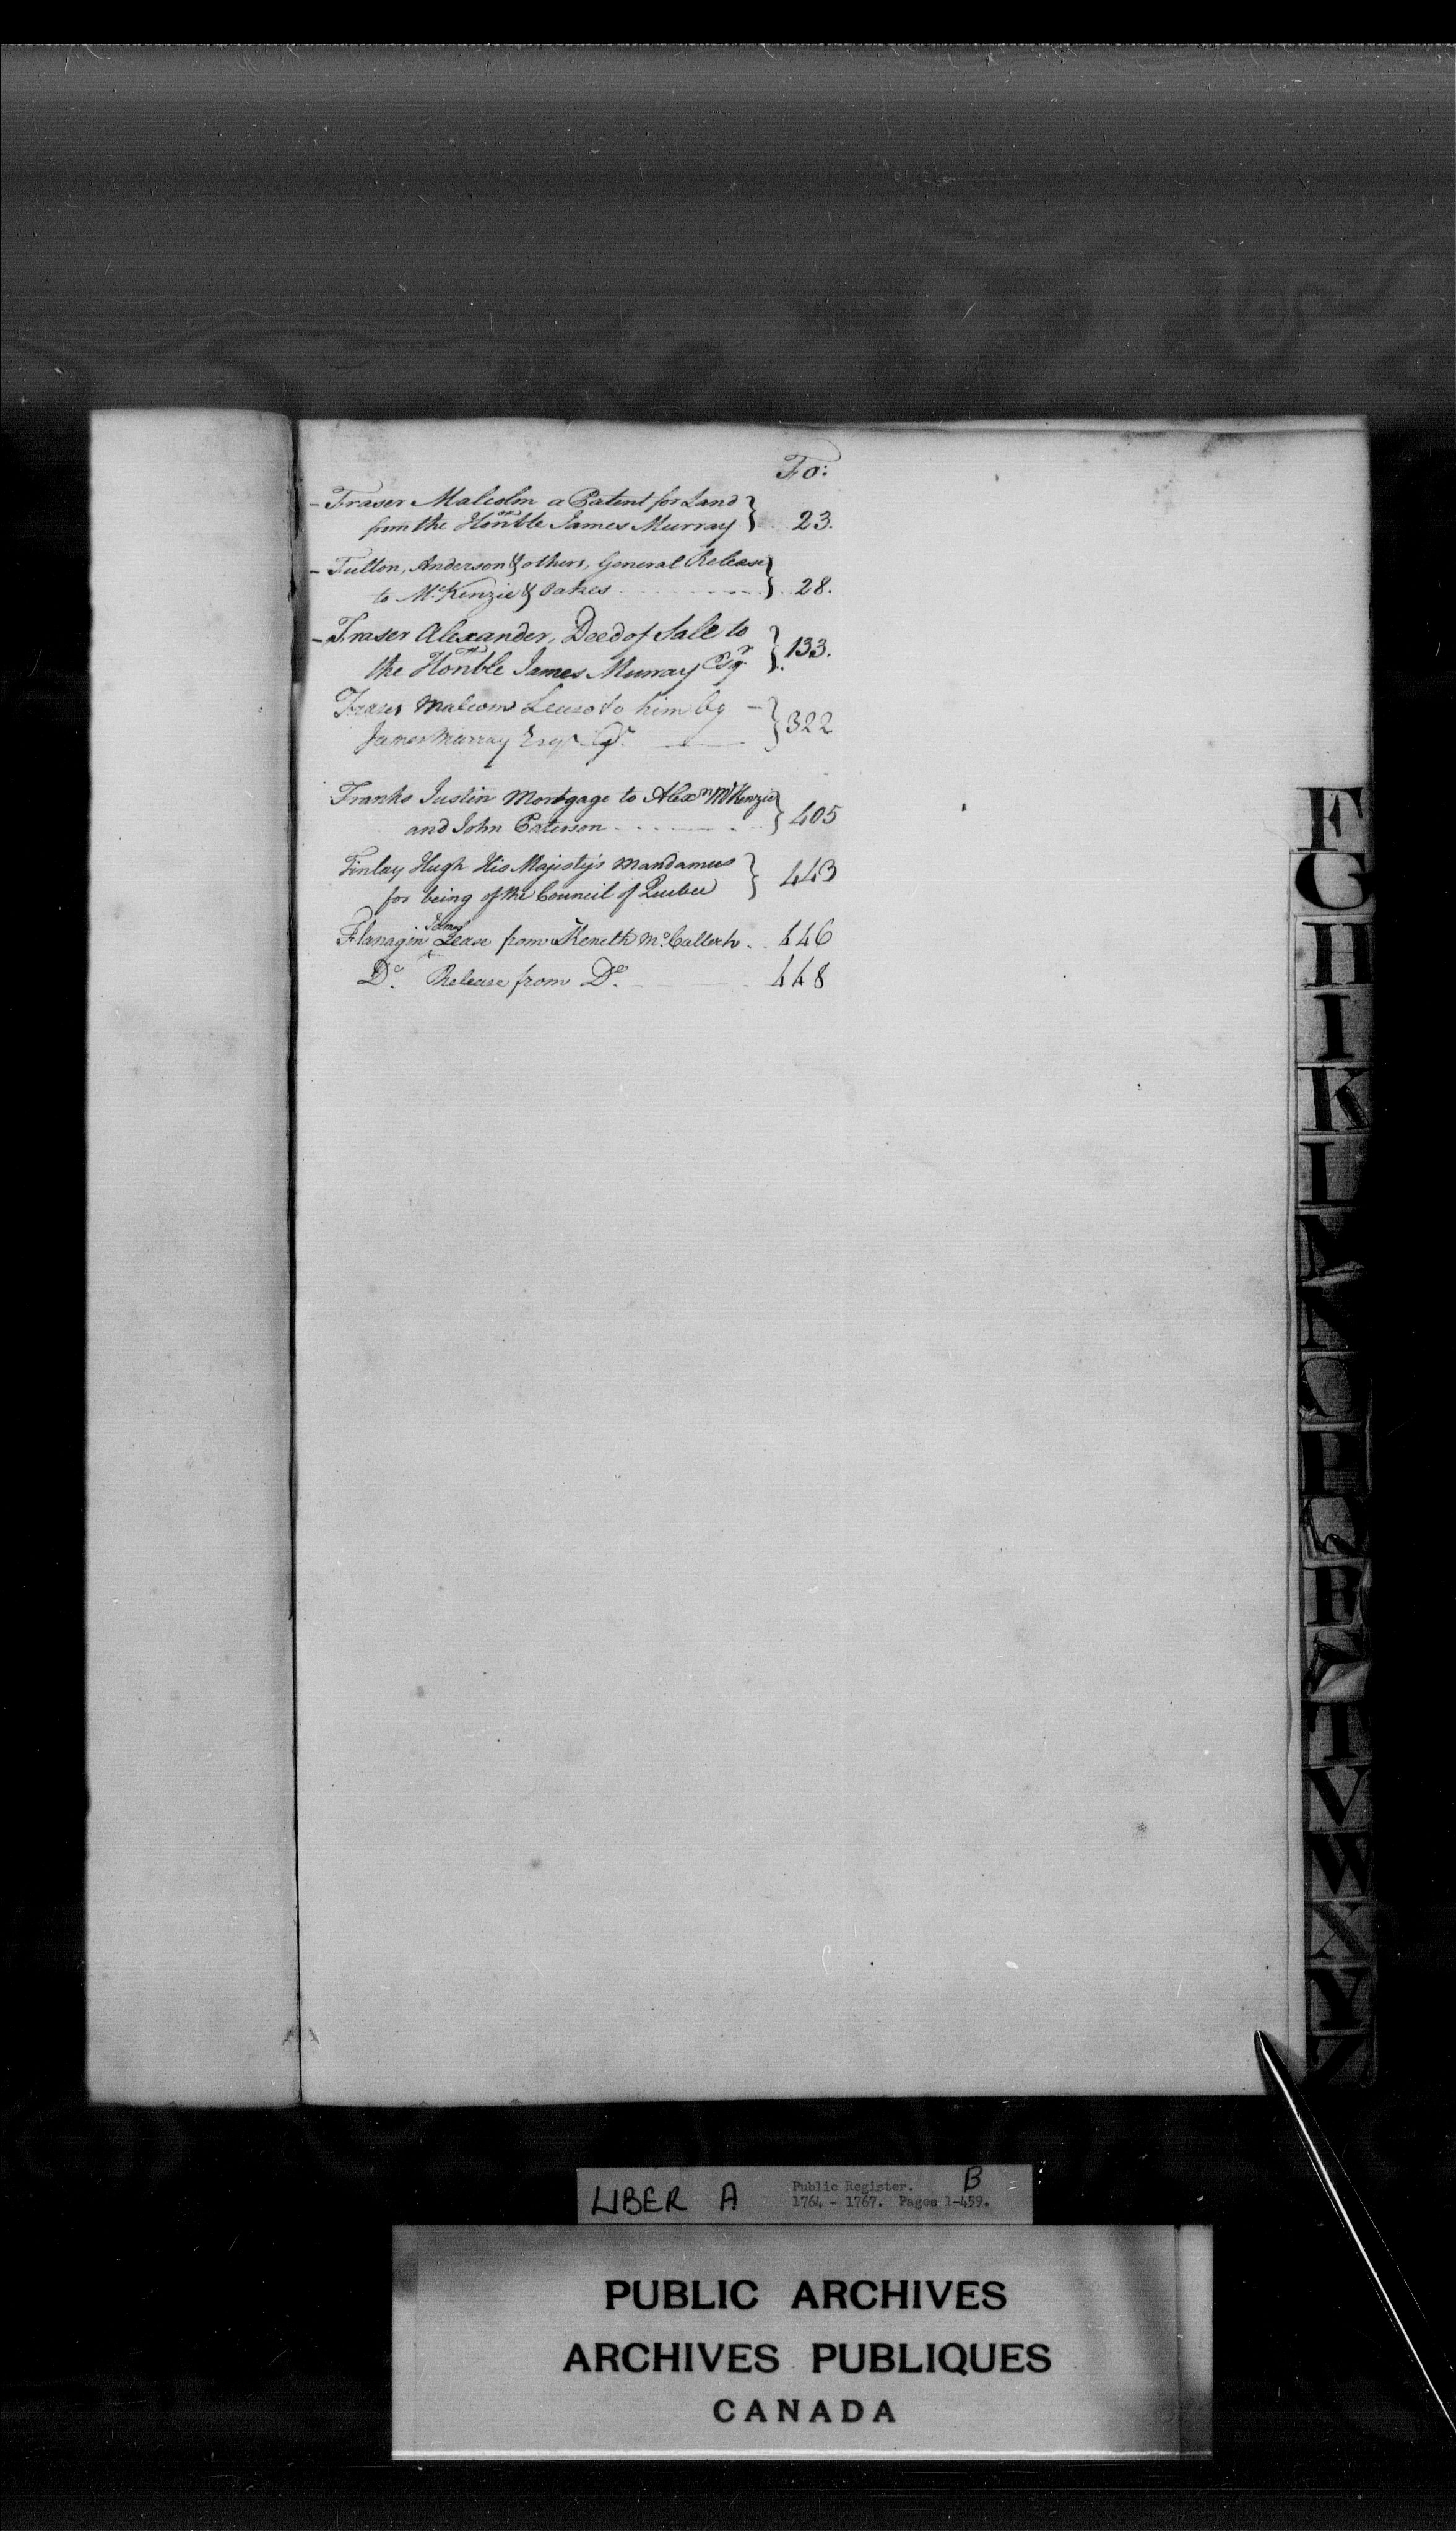 Fo:
- Fraser Malcolm a Patent for Land
from the Honble James Murray } 23.
- Fulton, Anderson & others, General Release
to McKenzie & Oakes } 28.
- Fraser Alexander, Deed of Sale to
the Honble James Murray Esqr } 133.
Fraser Malcom Lease to him by
James Murray Esqr } 322
Franks Justin Mortgage to Alexr McKenzie
and John Paterson } 405
Finlay Hugh His Majesty's Mandamus
for being of the Council of Quebec } 443
Flanagin James Lease from Keneth McCulloch 446
Do. Release from Do. 448
F
G
H
I
K
L
M
N
O
P
Q
R
S
T
V
W
X
Y
Z
LIBER A Public Register. B
1764 - 1767. Pages 1-459.
PUBLIC ARCHIVES
ARCHIVES PUBLIQUES
CANADA